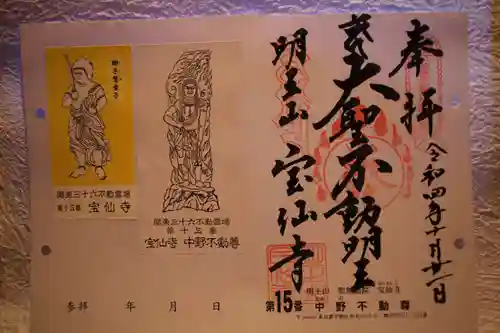 奉拝
令和四年十月廿一日
大聖不動明王
明王山
宝仙寺
関東三十六不動霊場
第十五番 宝仙寺
関東三十六不動霊場
第十五番
宝仙寺 中野不動尊
参拝 年 月 日
明王山 宝仙寺
第15番 中野不動尊